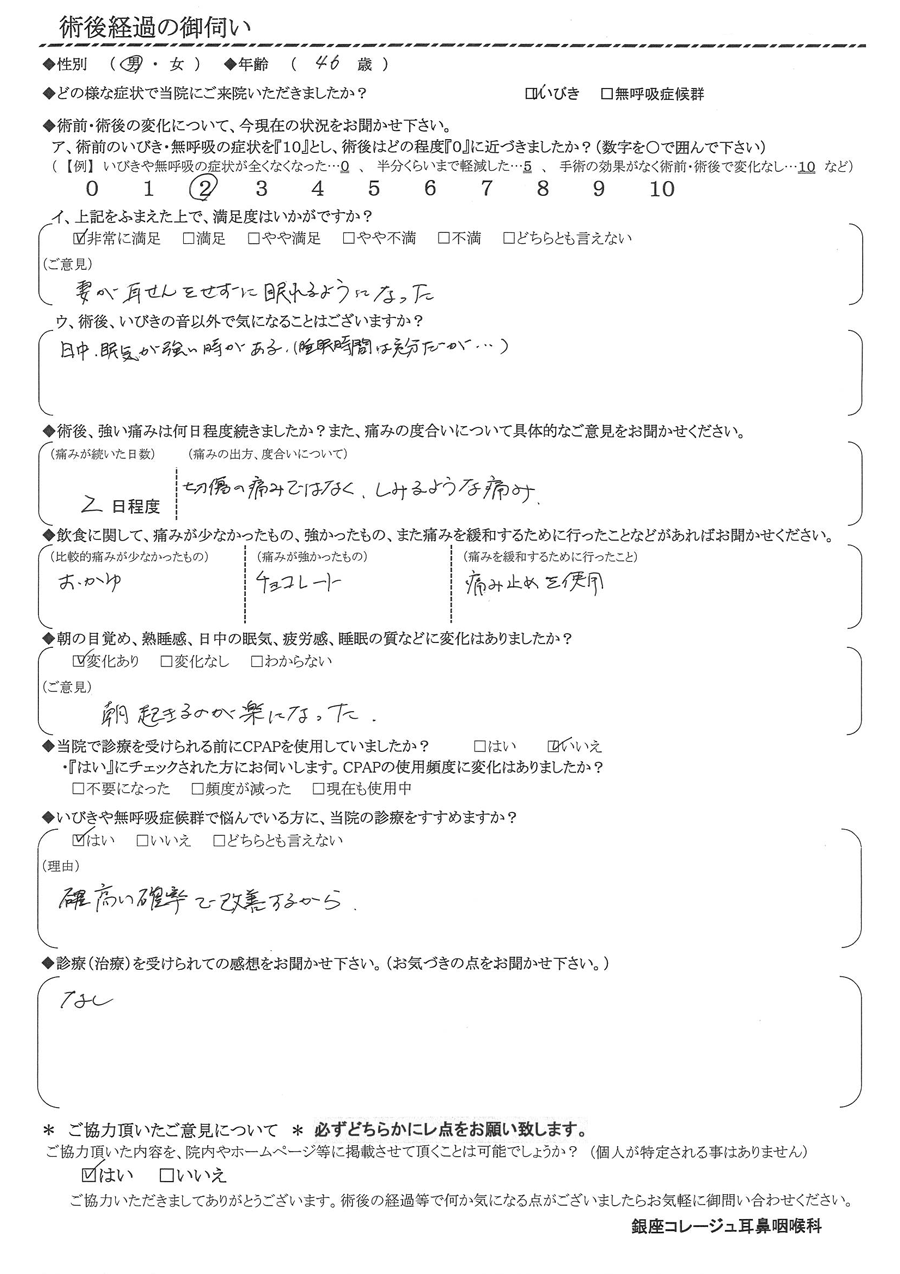 術後経過の御伺い
◆性別 ( 男 ・ 女 ) ◆年齢 ( 46 歳 )
◆どの様な症状で当院にご来院いただきましたか? ☑いびき □無呼吸症候群
◆術前・術後の変化について、今現在の状況をお聞かせ下さい。
ア、術前のいびき・無呼吸の症状を『10』とし、術後はどの程度『0』に近づきましたか?(数字を○で囲んで下さい)
(【例】 いびきや無呼吸の症状が全くなくなった…0 、 半分くらいまで軽減した…5 、 手術の効果がなく術前・術後で変化なし…10 など)
0 1 2 3 4 5 6 7 8 9 10
イ、上記をふまえた上で、満足度はいかがですか?
☑非常に満足 □満足 □やや満足 □やや不満 □不満 □どちらとも言えない
(ご意見)
妻が耳せんをせずに眠れるようになった
ウ、術後、いびきの音以外で気になることはございますか?
日中、眠気が強い時がある。(睡眠時間は充分だが…)
◆術後、強い痛みは何日程度続きましたか?また、痛みの度合いについて具体的なご意見をお聞かせください。
(痛みが続いた日数) (痛みの出方、度合いについて)
2 日程度 切傷の痛みではなく、しみるような痛み.
◆飲食に関して、痛みが少なかったもの、強かったもの、また痛みを緩和するために行ったことなどがあればお聞かせください。
(比較的痛みが少なかったもの) (痛みが強かったもの) (痛みを緩和するために行ったこと)
おかゆ チョコレート 痛み止めを使用
◆朝の目覚め、熟睡感、日中の眠気、疲労感、睡眠の質などに変化はありましたか?
☑変化あり □変化なし □わからない
(ご意見)
朝起きるのが楽になった.
◆当院で診療を受けられる前にCPAPを使用していましたか? □はい ☑いいえ
・『はい』にチェックされた方にお伺いします。CPAPの使用頻度に変化はありましたか?
□不要になった □頻度が減った □現在も使用中
◆いびきや無呼吸症候群で悩んでいる方に、当院の診療をすすめますか?
☑はい □いいえ □どちらとも言えない
(理由)
確高い確率で改善するから.
◆診療(治療)を受けられての感想をお聞かせ下さい。(お気づきの点をお聞かせ下さい。)
なし
＊ ご協力頂いたご意見について ＊ 必ずどちらかにレ点をお願い致します。
ご協力頂いた内容を、院内やホームページ等に掲載させて頂くことは可能でしょうか? (個人が特定される事はありません)
☑はい □いいえ
ご協力いただきましてありがとうございます。術後の経過等で何か気になる点がございましたらお気軽に御問い合わせください。
銀座コレージュ耳鼻咽喉科